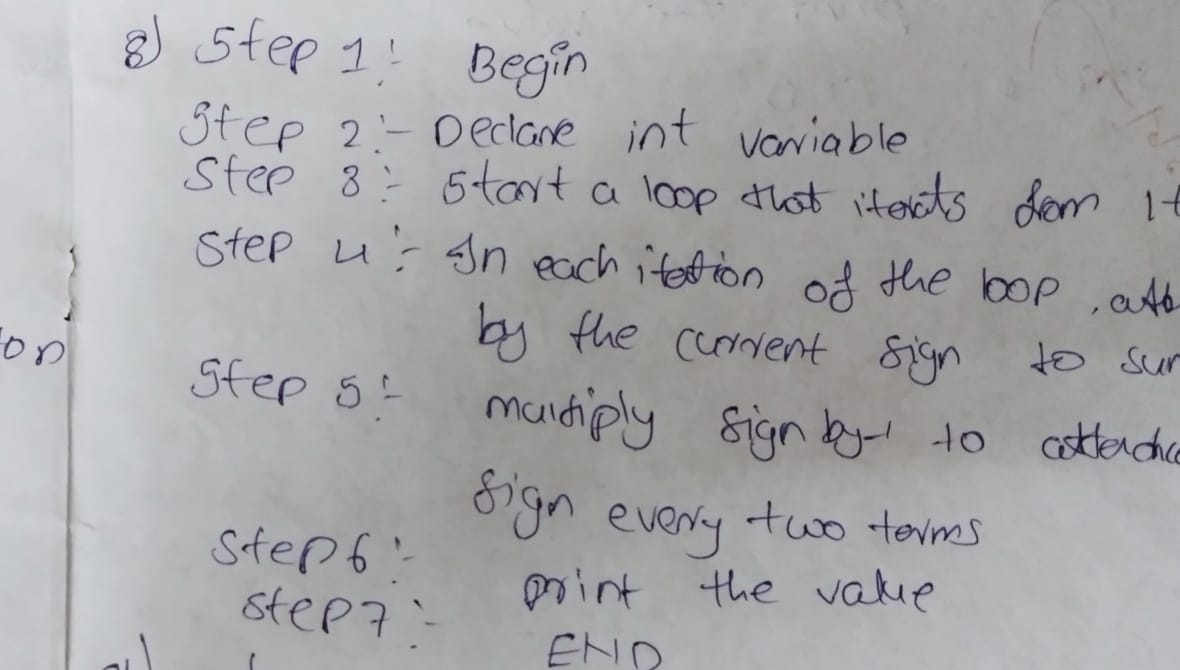 8) Step 1:- Begin
Step 2:- Declare int variable
Step 3:- Start a loop that iterats from 1
Step 4:- In each itation of the loop,
on
by the current sign to
Step 5:- multiply sign by -1 to
sign every two terms
Step 6:- print the value
Step 7:- END